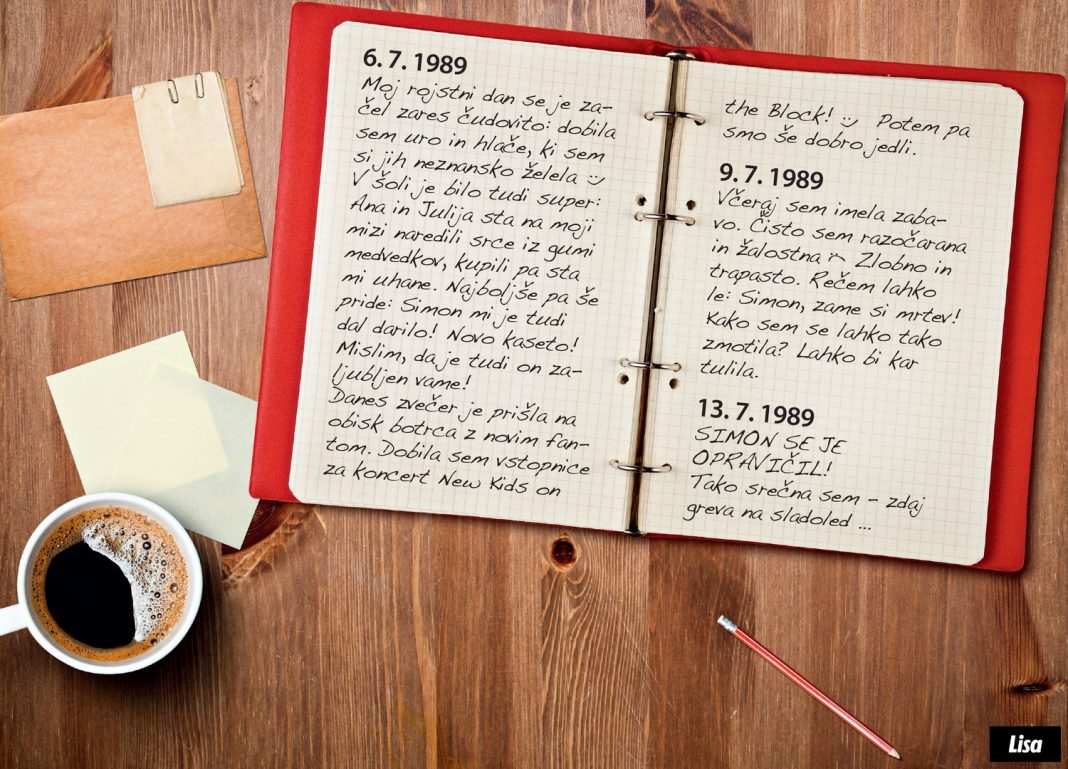 6. 7. 1989
Moj rojstni dan se je za-
čel zares čudovito: dobila
sem uro in hlače, ki sem
si jih neznansko želela :)
V šoli je bilo tudi super:
Ana in Julija sta na moji
mizi naredili srce iz gumi
medvedkov, kupili pa sta
mi uhane. Najboljše pa še
pride: Simon mi je tudi
dal darilo! Novo kaseto!
Mislim, da je tudi on za-
ljubljen vame!
Danes zvečer je prišla na
obisk botrca z novim fan-
tom. Dobila sem vstopnice
za koncert New Kids on
the Block! :) Potem pa
smo še dobro jedli.
9. 7. 1989
Včeraj sem imela zaba-
vo. Čisto sem razočarana
in žalostna :( Zlobno in
trapasto. Rečem lahko
le: Simon, zame si mrtev!
Kako sem se lahko tako
zmotila? Lahko bi kar
tulila.
13. 7. 1989
SIMON SE JE
OPRAVIČIL!
Tako srečna sem – zdaj
greva na sladoled ...
Lisa